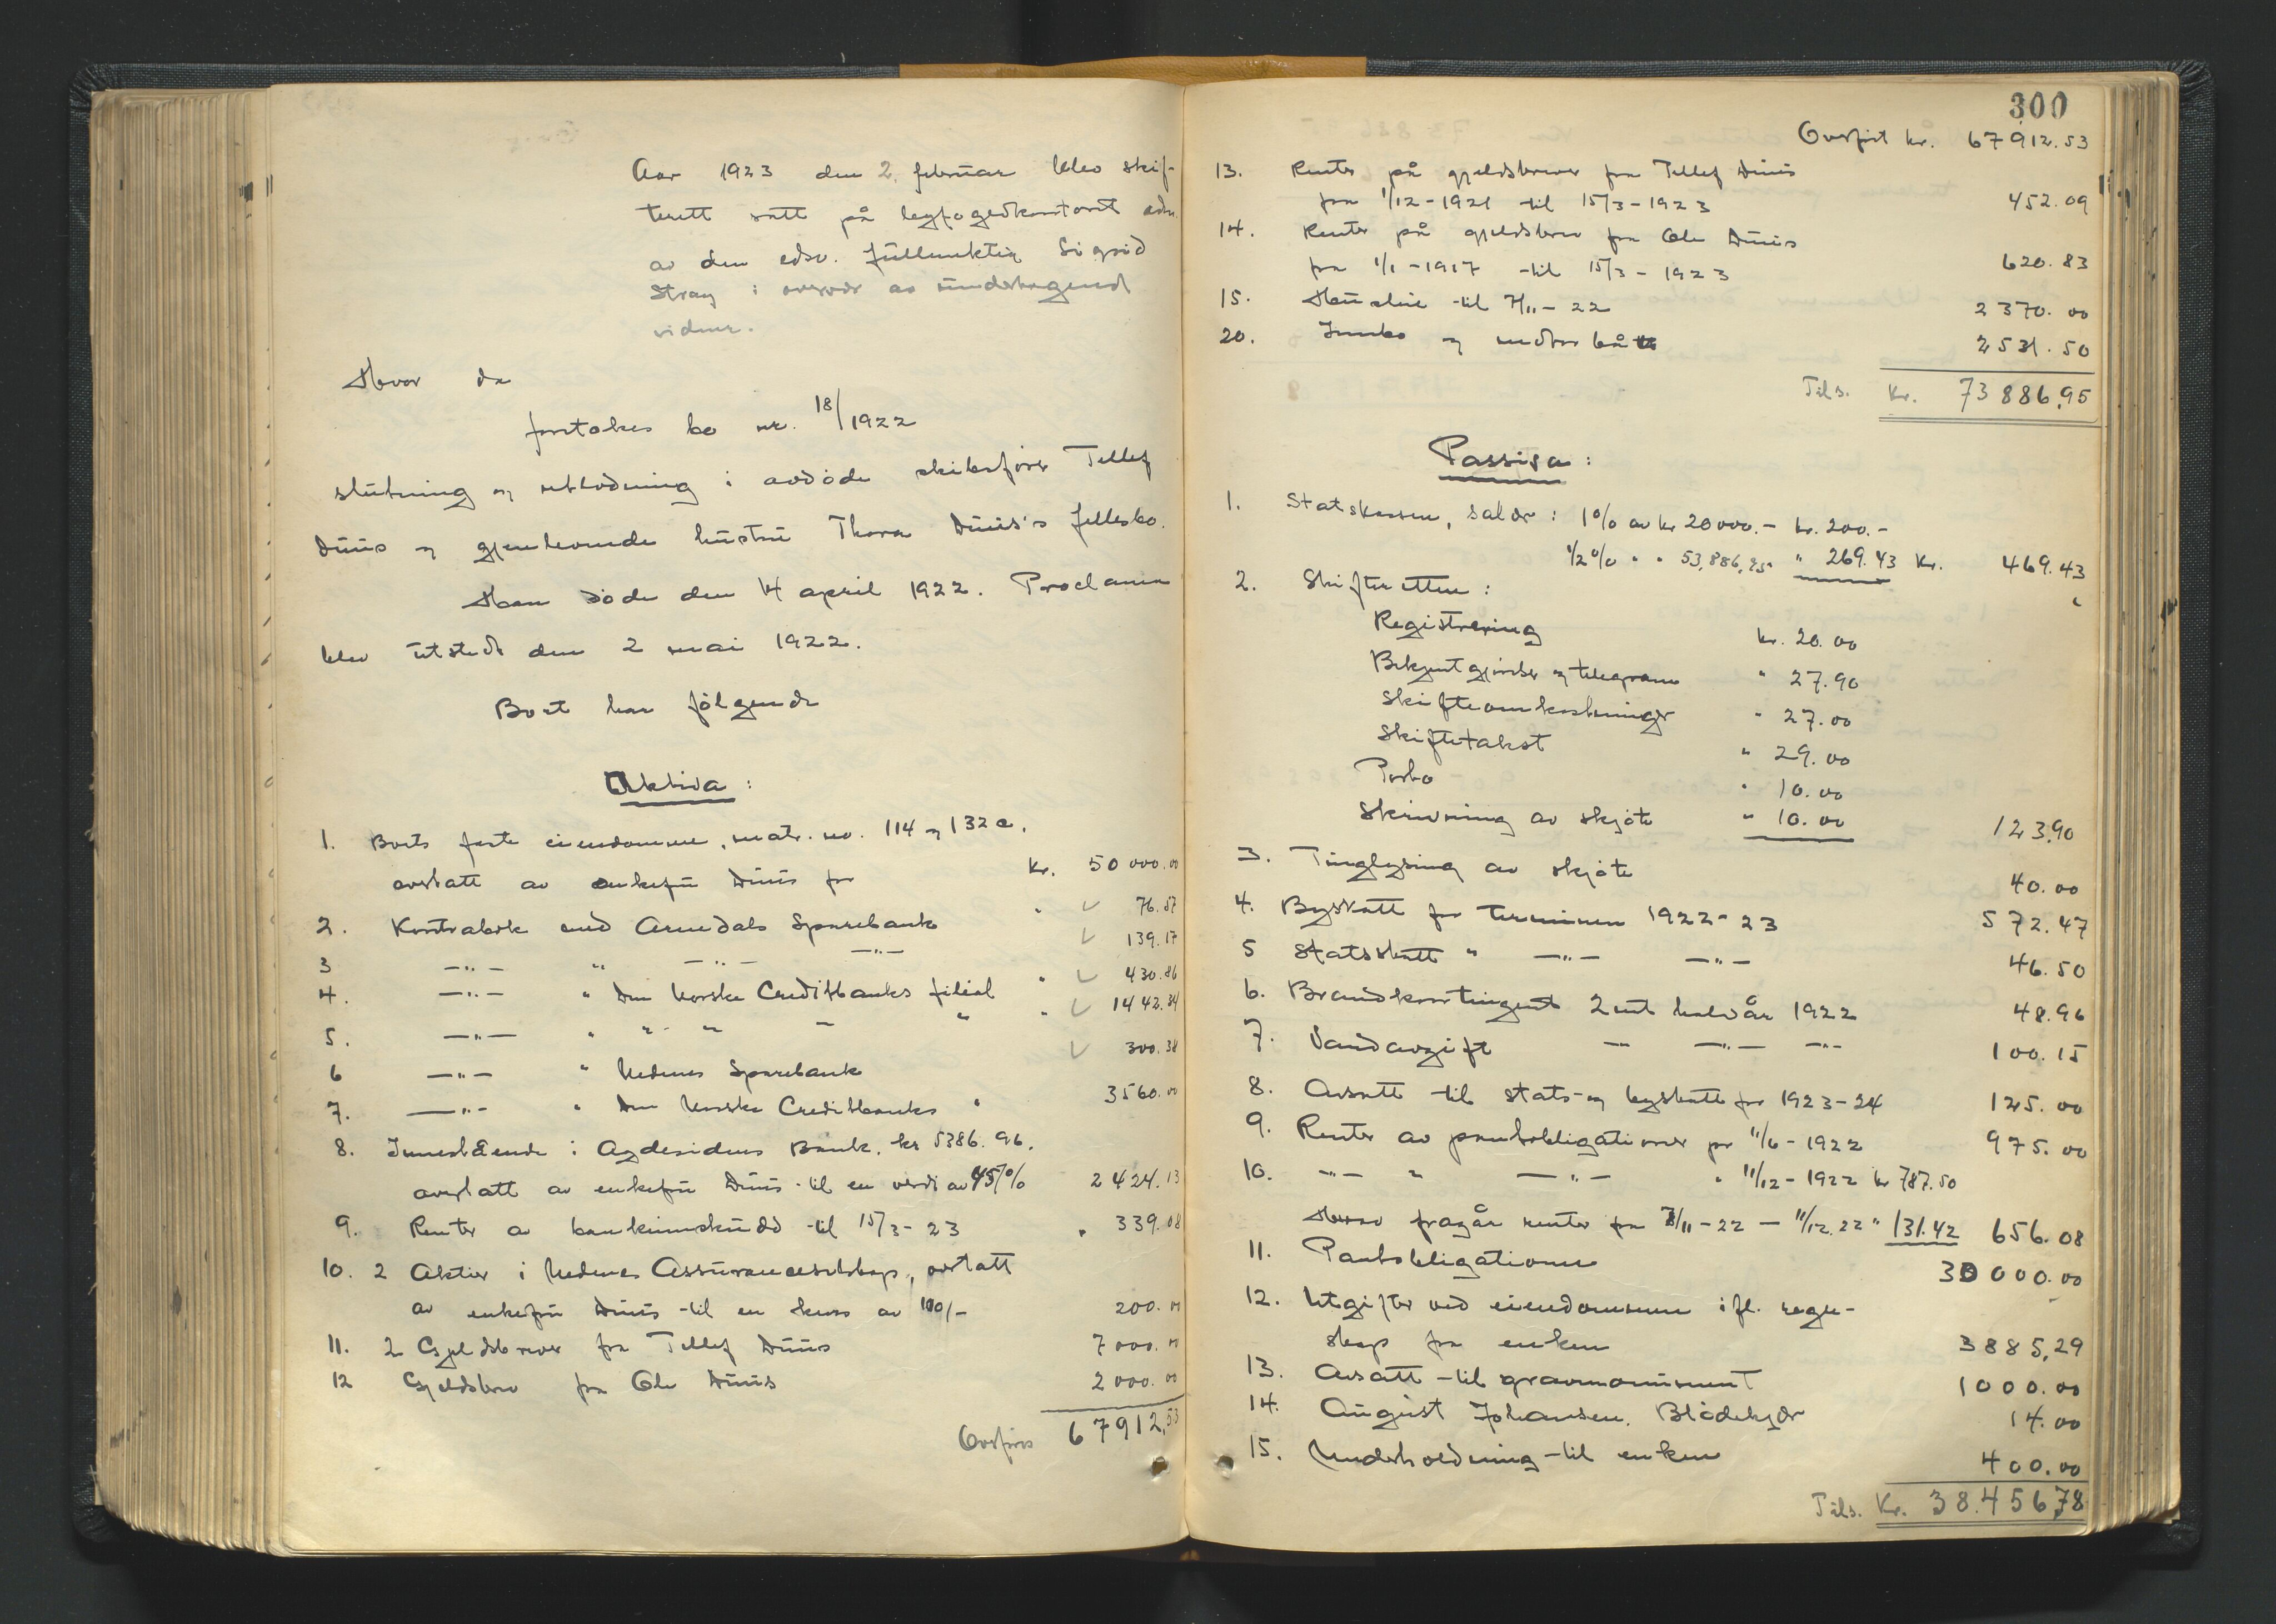 Aar 1923 den 2. februar blev skif-
terett satt på byfogedkontoret adm.
av den edsv. fullmektig Sigrid
Stray i overvær av undertegnede
vidner.
Hvor da
foretokes bo nr. 18/1922
slutning og utlodning i avdöde skibsförer Tellef
Duus og gjenlevende hustru Thora Duus's fellesbo.
Han döde den 14 april 1922. Proclama
blev utstedt den 2 mai 1922.
Boet har fölgende
Aktiva:
1. Boets faste eiendomme, matr. no. 114 og 132 a.
overtatt av enkefru Duus for Kr. 50 000.00
2. Kontrabok med Arendals Sparebank " 76.57
3 —"— " —"— —"— 139.17
4. —"— " Den Norske Creditbanks filial " 430.86
5. —"— " " " — " " 1442.34
6 —"— " Nedenes Sparebank 300.38
7. —"— " Den Norske Creditbanks " 3560.00
8. Innestående i Agdesidens Bank. kr 5386.96.
overtatt av enkefru Duus til en verdi av 45% 2 424.13
9. Renter av bankinnskudd til 15/3-23 " 339.08
10. 2 Aktier i Nedenes Assuranceselskap, overtatt
av enkefru Duus til en kurs av 100/- 200.00
11. 2 Gjeldsbrever fra Tellef Duus 7 000.00
12 Gjeldsbrev fra Ole Duus 2 000.00
Overföres 67912,53
300
Overfört kr. 67912.53
13. Renter på gjeldsbrever fra Tellef Duus
fra 1/12-1921 til 15/3-1923 452.09
14. Renter på gjeldsbrev fra Ole Duus
fra 1/1-1917 til 15/3-1923 620.83
15. Husleie til 7/11-22 2 370.00
20. Innbo og 2531.50
Tils. Kr. 73 886,95
Passiva:
1. Statskassen, salær: 1% av kr 20000.- kr. 200.-
1/2% " " 53,886,95 " 269.43 Kr. 469.43
2. Skifteretten:
Registrering kr. 20.00
Bekjentgjörelse og telegram " 27.90
Skifteomkostninger " 27.00
Skiftetakst " 29.00
Porto " 10.00
Skrivning av skjöte " 10.00 123,90
3. Tinglysning av skjöte 40.00
4. Byskatt for terminen 1922-23 572.47
5 Statsskatt " —"— —"— 46.50
6. Brandkontingent 2net halvår 1922 48.96
7. Vandavgift —"— —"— —"— 100.15
8. Avsatt til stats- og byskatt for 1923-24 125.00
9. Renter av pantobligationer pr 11/6-1922 975.00
10. —"— " —"— " 11/12-1922 kr 787.50
Herav fragår renter fra 7/11-22 — 11/12.22 " 131.42 656.08
11. Pantobligationer 30 000.00
12. Utgifter ved eiendommene ifl. regn-
skap fra enken 3885,29
13. Avsatt til gravmonument 1000.00
14. August Johansen. 14.00
15. Underholdning til enken 400.00
Tils. Kr. 38.456,78